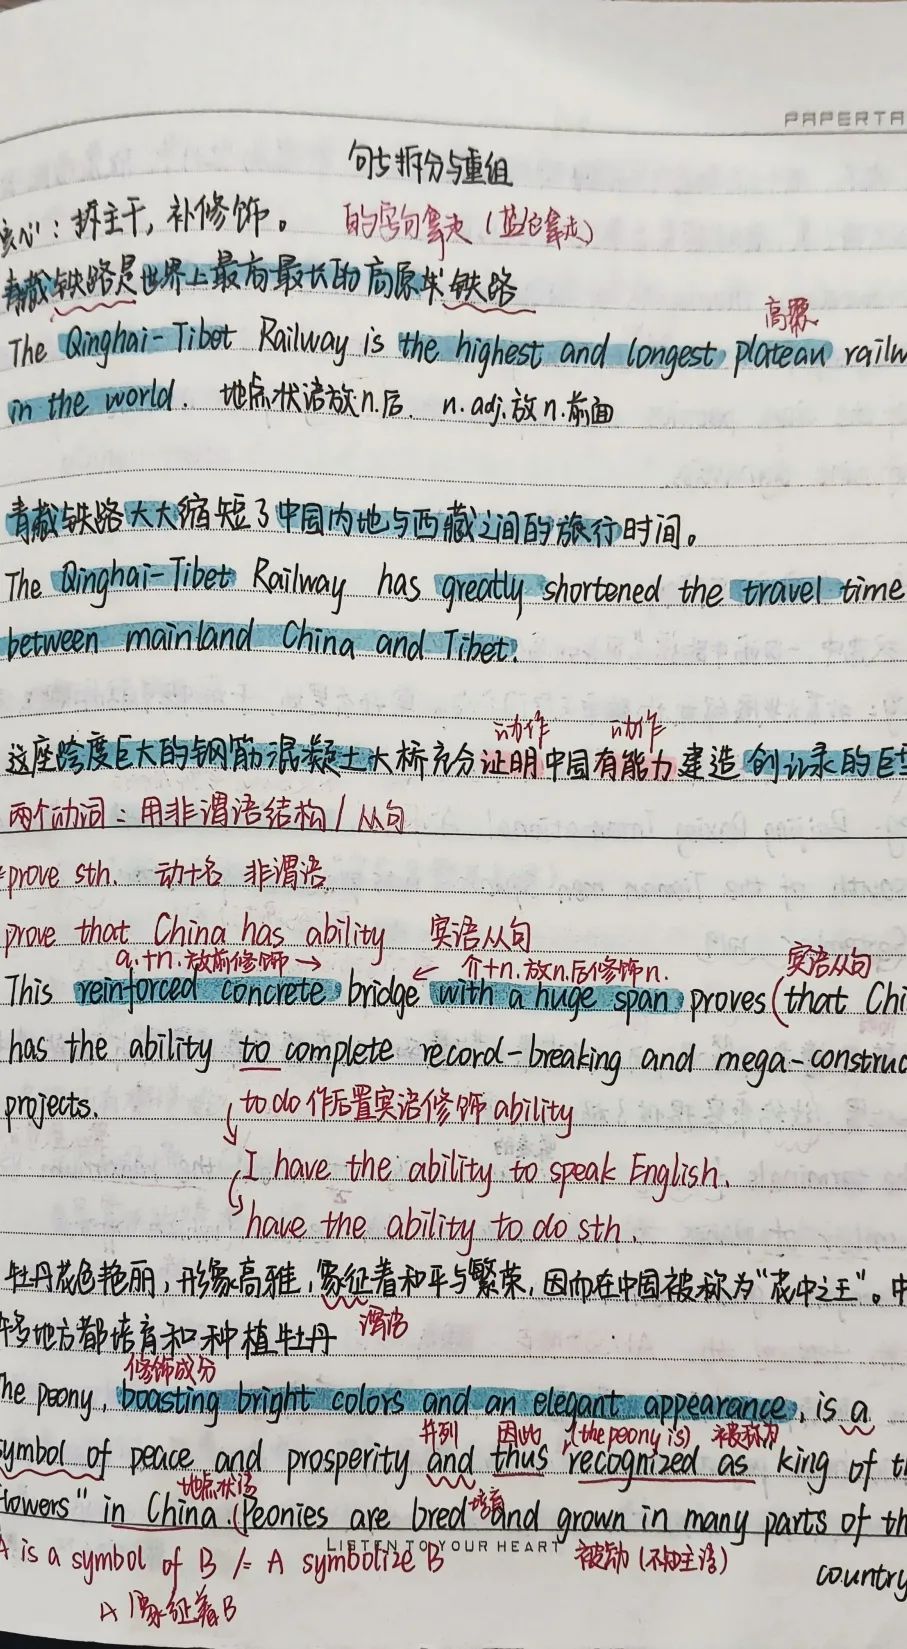 PAPERTA
句式拆分与重组
核心：拆主干，补修饰。 的字句拿走（蓝色拿走）
青藏铁路是世界上最高最长的高原铁路
高原
The Qinghai-Tibet Railway is the highest and longest plateau railw
in the world. 地点状语放n.后. n. adj.放n.前面
青藏铁路大大缩短了中国内地与西藏之间的旅行时间。
The Qinghai-Tibet Railway has greatly shortened the travel time
between mainland China and Tibet.
动作 动作
这座跨度巨大的钢筋混凝土大桥充分证明中国有能力建造创记录的巨型
两个动词：用非谓语结构/从句
prove sth. 动+名 非谓语
prove that China has ability 宾语从句
a.+n.放前修饰→ ← 介+n.放n.后修饰n. 宾语从句
This reinforced concrete bridge with a huge span proves (that Chi
has the ability to complete record-breaking and mega-construc
projects. to do 作后置宾语修饰 ability
I have the ability to speak English.
have the ability to do sth.
牡丹花色艳丽，形象高雅，象征着和平与繁荣，因而在中国被称为“花中之王”。中
许多地方都培育和种植牡丹 谓语
修饰成分
he peony, boasting bright colors and an elegant appearance, is a
并列 因此 (the peony is) 被称为
symbol of peace and prosperity and thus recognized as king of th
地点状语
flowers" in China. (Peonies are bred 培育 and grown in many parts of th
LISTEN TO YOUR HEART
A is a symbol of B /= A symbolize B 被动（不知主语） country
A 象征着B